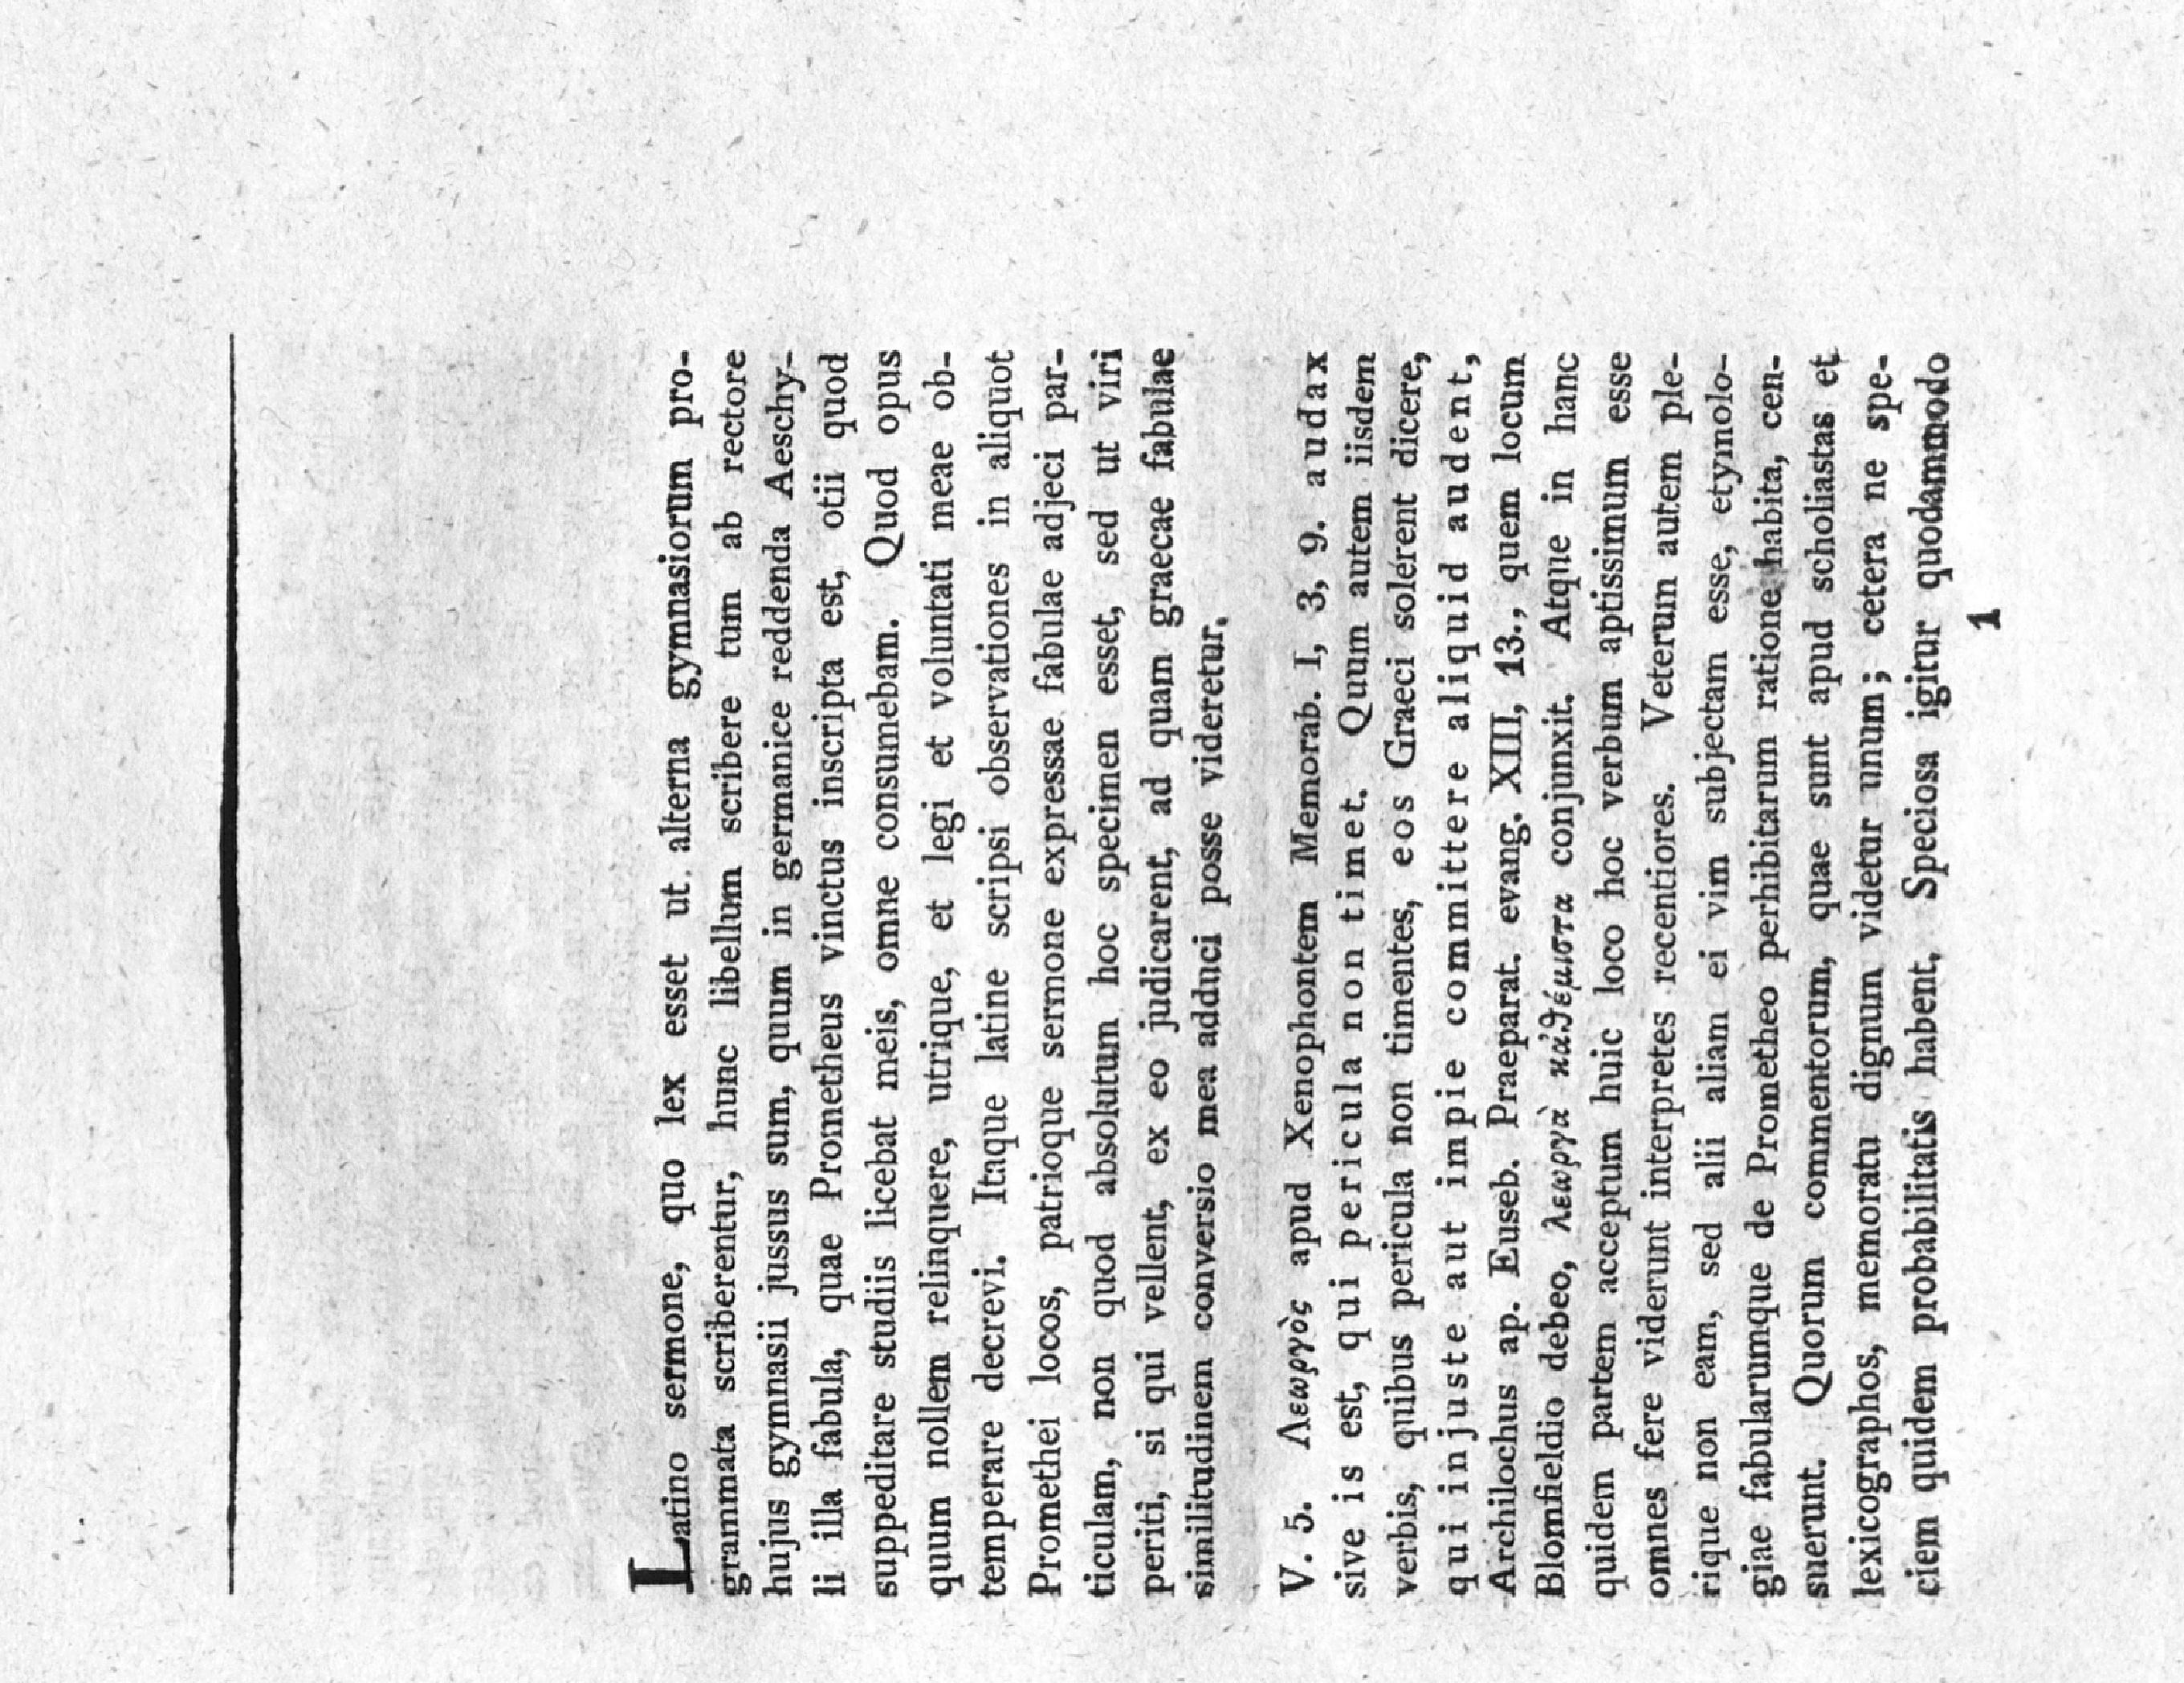 Latino sermone, quo lex esset ut alterna gymnasiorum pro-
grammata scriberentur, hunc libellum scribere tum ab rectore
hujus gymnasii jussus sum, quum in germanice reddenda Aeschy-
li illa fabula, quae Prometheus vinctus inscripta est, otii quod
suppeditare studiis licebat meis, omne consumebam. Quod opus
quum nollem relinquere, utrique, et legi et voluntati meae ob-
temperare decrevi. Itaque latine scripsi observationes in aliquot
Promethei locos, patrioque sermone expressae fabulae adjeci par-
ticulam, non quod absolutum hoc specimen esset, sed ut viri
periti, si qui vellent, ex eo judicarent, ad quam graecae fabulae
similitudinem conversio mea adduci posse videretur.
V. 5. Λεωργὸς apud Xenophontem Memorab. I, 3, 9. audax
sive is est, qui pericula non timet. Quum autem iisdem
verbis, quibus pericula non timentes, eos Graeci solerent dicere,
qui injuste aut impie committere aliquid audent,
Archilochus ap. Euseb. Praeparat. evang. XIII, 13., quem locum
Blomfieldio debeo, λεωργὰ κἀθέμιστα conjunxit. Atque in hanc
quidem partem acceptum huic loco hoc verbum aptissimum esse
omnes fere viderunt interpretes recentiores. Veterum autem ple-
rique non eam, sed alii aliam ei vim subjectam esse, etymolo-
giae fabularumque de Prometheo perhibitarum ratione habita, cen-
suerunt. Quorum commentorum, quae sunt apud scholiastas et
lexicographos, memoratu dignum videtur unum; cetera ne spe-
ciem quidem probabilitatis habent. Speciosa igitur quodammodo
1